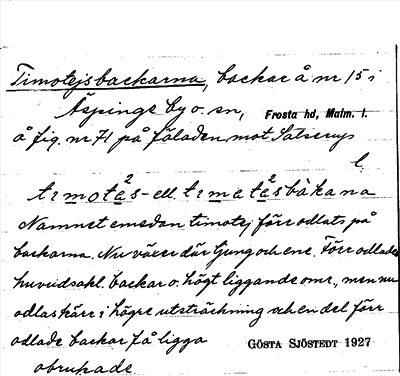 Timotejsbackarna, backar å nr 15 i
Äspinge by o. sn, Frosta hd, Malm. l.
å fig. nr 71 på fäladen mot Satserup
l.
timotes- ell. timatesbakana
2 2
Namnet emedan timotej förr odlats på
backarna. Nu växer där ljung och ene. Förr odlades
huvudsakl. backar o. högt liggande omr., men nu
odlas kärr i högre utsträckning och en del förr
odlade backar få ligga GÖSTA SJÖSTEDT 1927
obrukade